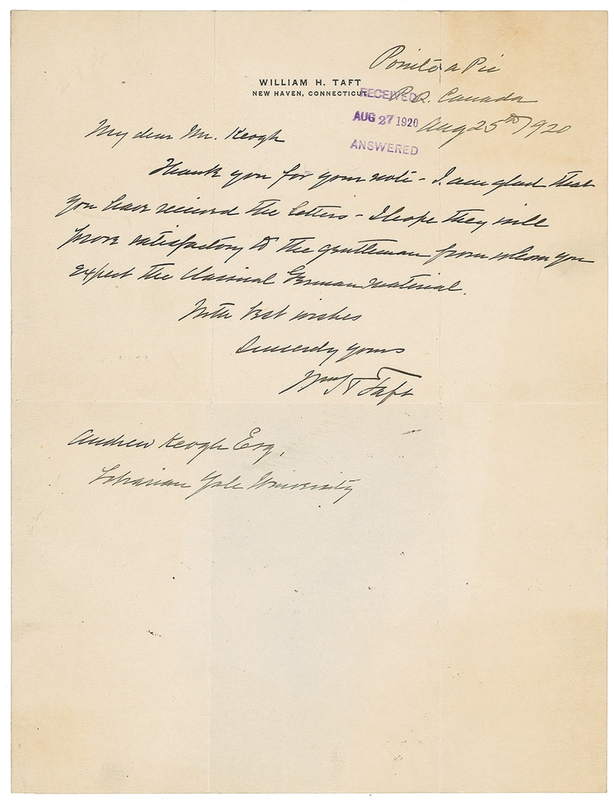 Pointe a Pic
WILLIAM H. TAFT
NEW HAVEN, CONNECTICUT.
RECEIVED
P.Q. Canada
AUG 27 1920
Aug 25th 1920
ANSWERED
My dear Mr. Keogh
Thank you for your note - I am glad that
you have received the letters - I hope they will
prove satisfactory to the gentleman from whom you
expect the classical German material.
With best wishes
Sincerely yours
Wm H Taft
Andrew Keogh Esq.
Librarian Yale University